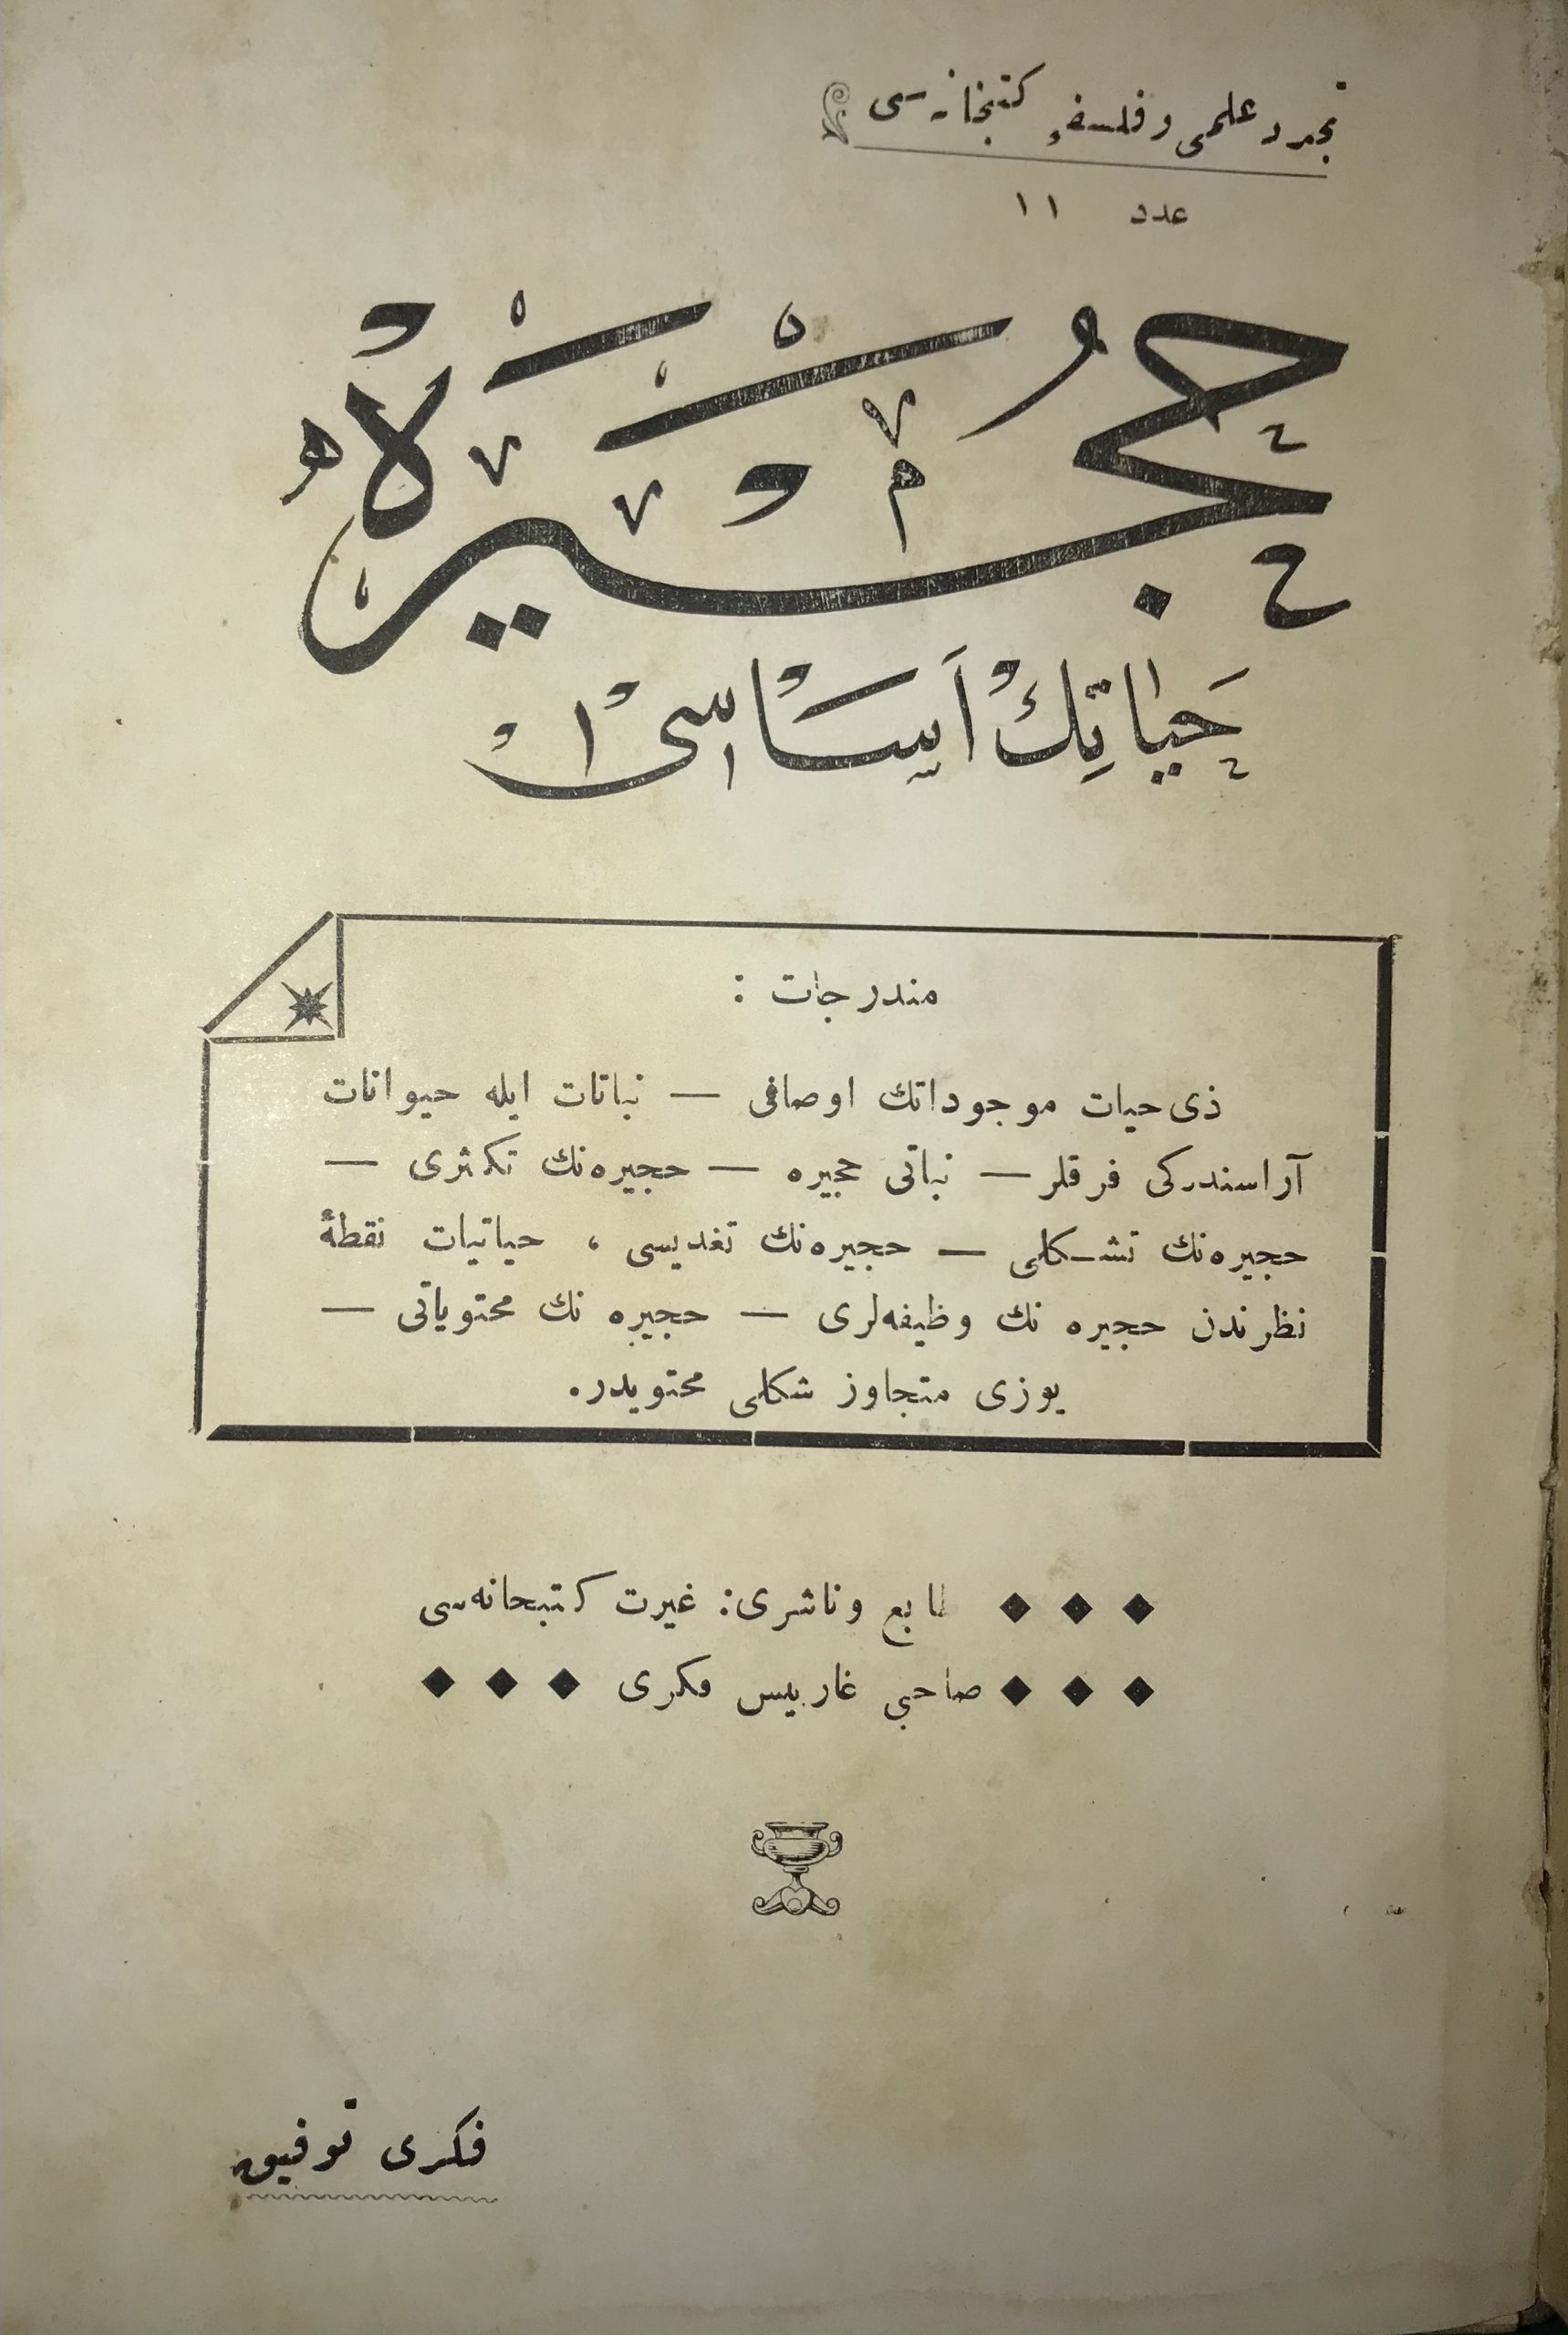 تجدد علمی و فلسفی کتبخانه‌سی
عدد ۱۱
حجیره
حیاتك اساسی
مندرجات :
ذی حیات موجوداتك اوصافی — نباتات ایله حیوانات
آراسندركی فرقلر — نباتی حجیره — حجیره‌نك تكثری —
حجیره‌نك تشكلی — حجیره‌نك تغدیسی ، حیاتیات نقطهٔ
نظرندن حجیره نك وظیفه‌لری — حجیره نك محتویاتی —
یوزی متجاوز شكلی محتویدر.
طابع وناشری: غیرت كتبخانه‌سی
صاحبی غاربیس فكری
فكری توفیق